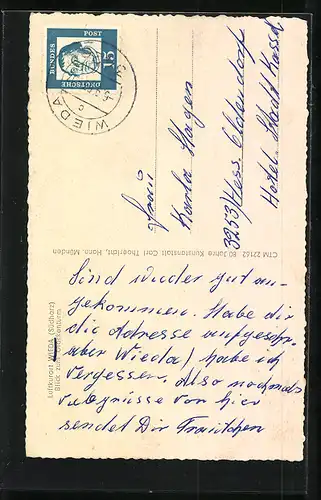 DEUTSCHE
BUNDES
POST
15
WIEDA
Frau
Karla Hagen
3253 Hess. Oldendorf
Hotel Stadt Kassel
CTM 22162 80 Jahre Kunstanstalt Carl Thoericht, Hann. Münden
Luftkurort WIEDA (Südharz)
Blick zum
Sind wieder gut an-
gekommen. Habe dir
die Adresse aufgeschr.
aber Wieda habe ich
vergessen. Also nochmals
von hier
sendet Dir